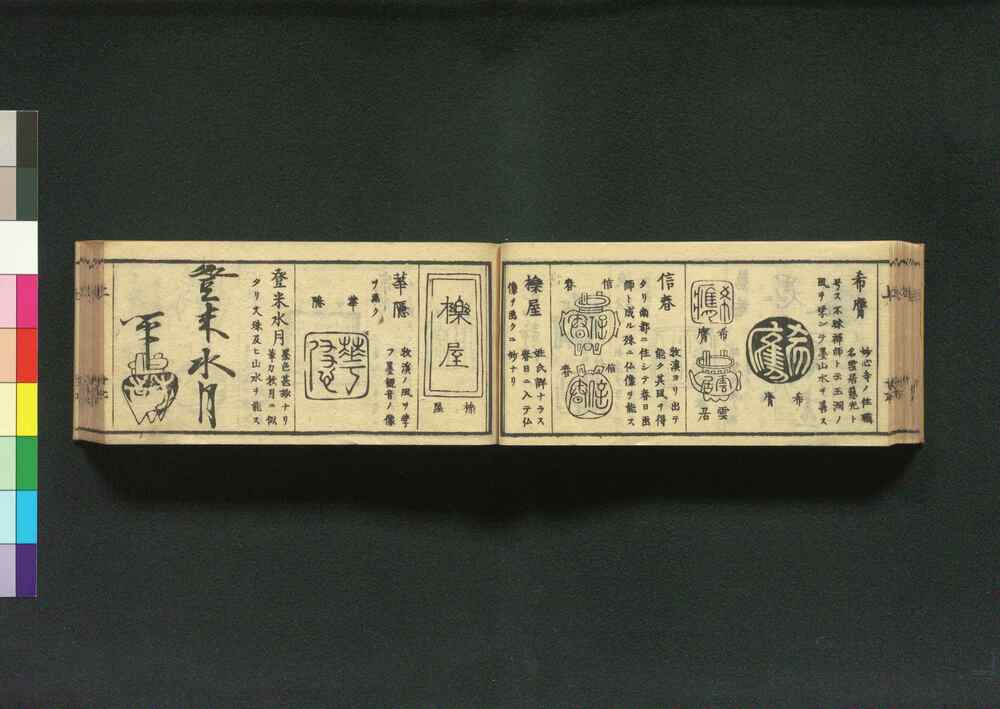 希膺
妙心寺ノ住職
名雲居慈光ト
号ス不昧禅師ト云玉澗ノ
風ヲ学ンテ墨山水ヲ善ス
希
膺
希
膺
雲
居
信春
牧渓ヨリ出テ
能ク其風ヲ得
タリ南都ニ住シテ春日画
師ト成ル殊ニ仏像ヲ能ス
信
春
信
春
櫟屋
姓氏詳ナラス
春日ニ入テ仏
像ヲ画クニ妙ナリ
櫟屋
櫟
屋
華隠
牧渓ノ風ヲ学
フ墨観音ノ像
ヲ画ク
華
隠
登米水月
墨色甚妙ナリ
筆力秋月ニ似
タリ大珠及ヒ山水ヲ能ス
登米水月